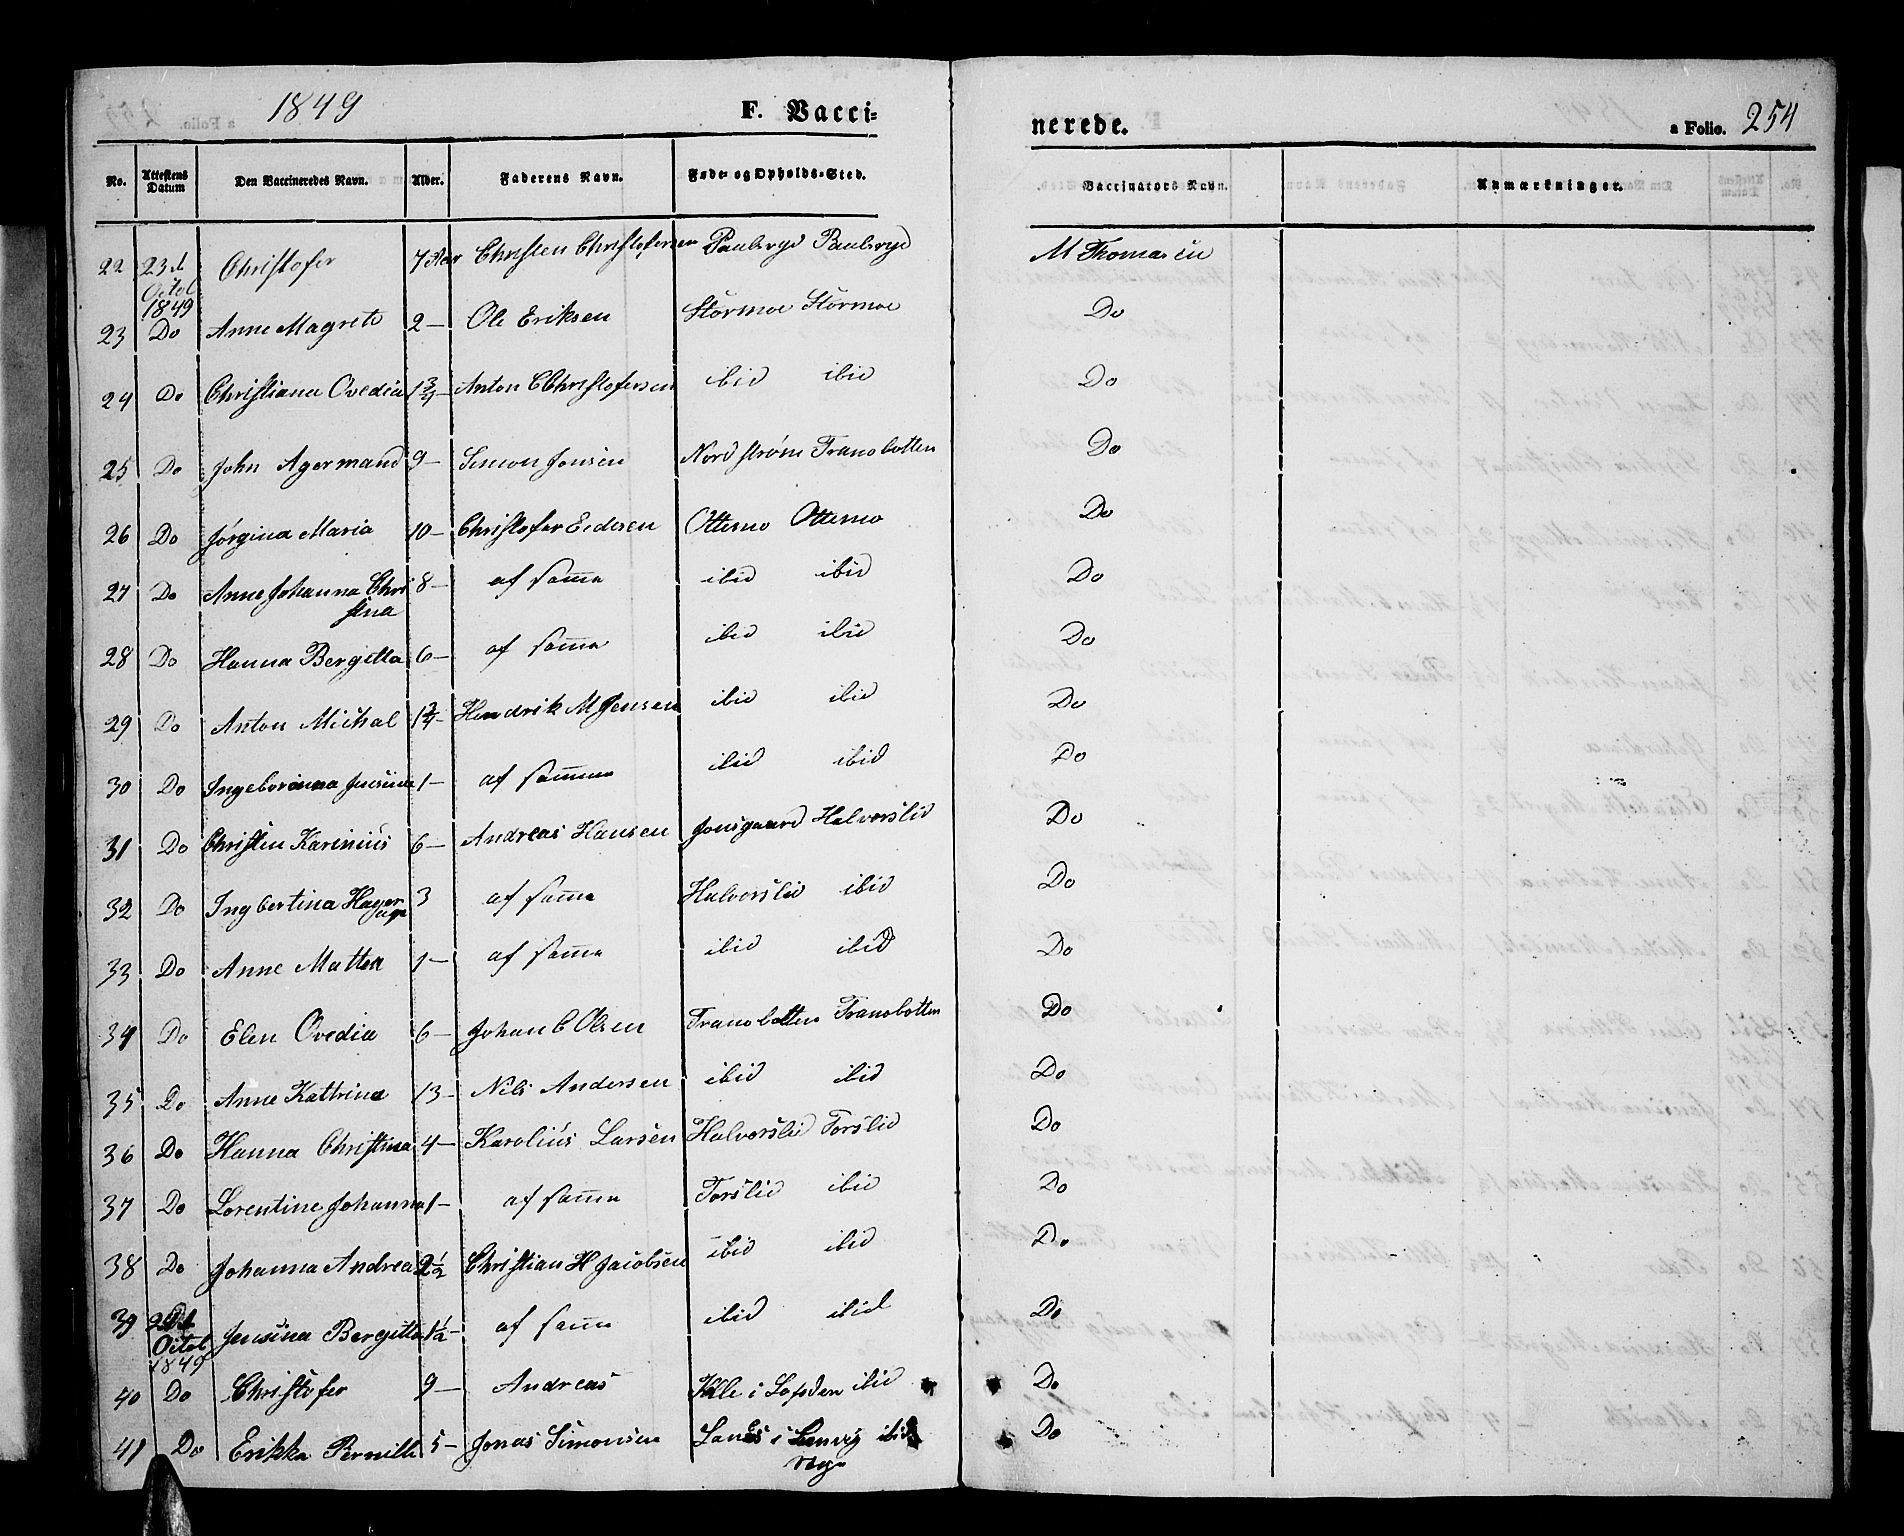 1849 F. Vacci= nerede. a Folio. 254
No. Attestens Datum Den Vaccineredes Navn. Alder. Faderens Navn. Føde- og Opholds-Sted. Vaccinators Navn. Anmærkninger.
22 23d Octob 1849 Christofer 7 Aar Christen Christofersen M Thomasen
23 Do Anne Magrete 2 — Ole Eriksen Stormoe Stormoe Do
24 Do Christiana Ovedia 1 3/4 — Anton C Christofersen ibid ibid Do
25 Do John Agermand 9 — Simon Jonsen Nordstrøm Tranobotten Do
26 Do Jørgina Maria 10 — Christofer Edisen Ottesmo Ottesmo Do
27 Do Anne Johanna Chri stina 8 — af samme ibid ibid Do
28 Do Hanna Bergitta 6 — af samme ibid ibid Do
29 Do Anton Michal 1 3/4 — Hendrik M Jensen ibid ibid Do
30 Do Jensina 1 — af samme ibid ibid Do
31 Do Christen Karinius 6 — Andreas Hansen Jonsgaard Halvorslid Do
32 Do Ingbertina 3 af samme Halvorslid ibid Do
33 Do Anne Mattea 1 — af samme ibid ibid Do
34 Do Elen Ovedia 6 — Johan C Olsen Tranobotten Tranobotten Do
35 Do Anne Kattrina 13 — Nils Andersen ibid ibid Do
36 Do Hanna Christina 4 — Karolius Larsen Halvorslid Torslid Do
37 Do Lorentine Johanna 1 — af samme Torslid ibid Do
38 Do Johanna Andrea 2 1/2 Christian H Jacobsen ibid ibid Do
39 Octob 1849 Jensina Bergitta 1/2 — af samme ibid ibid Do
40 Do Christofer 9 — Andreas i ibid Do
41 Do Erikka Pernille 5 — Jonas Simonsen i Lenvig ibid Do